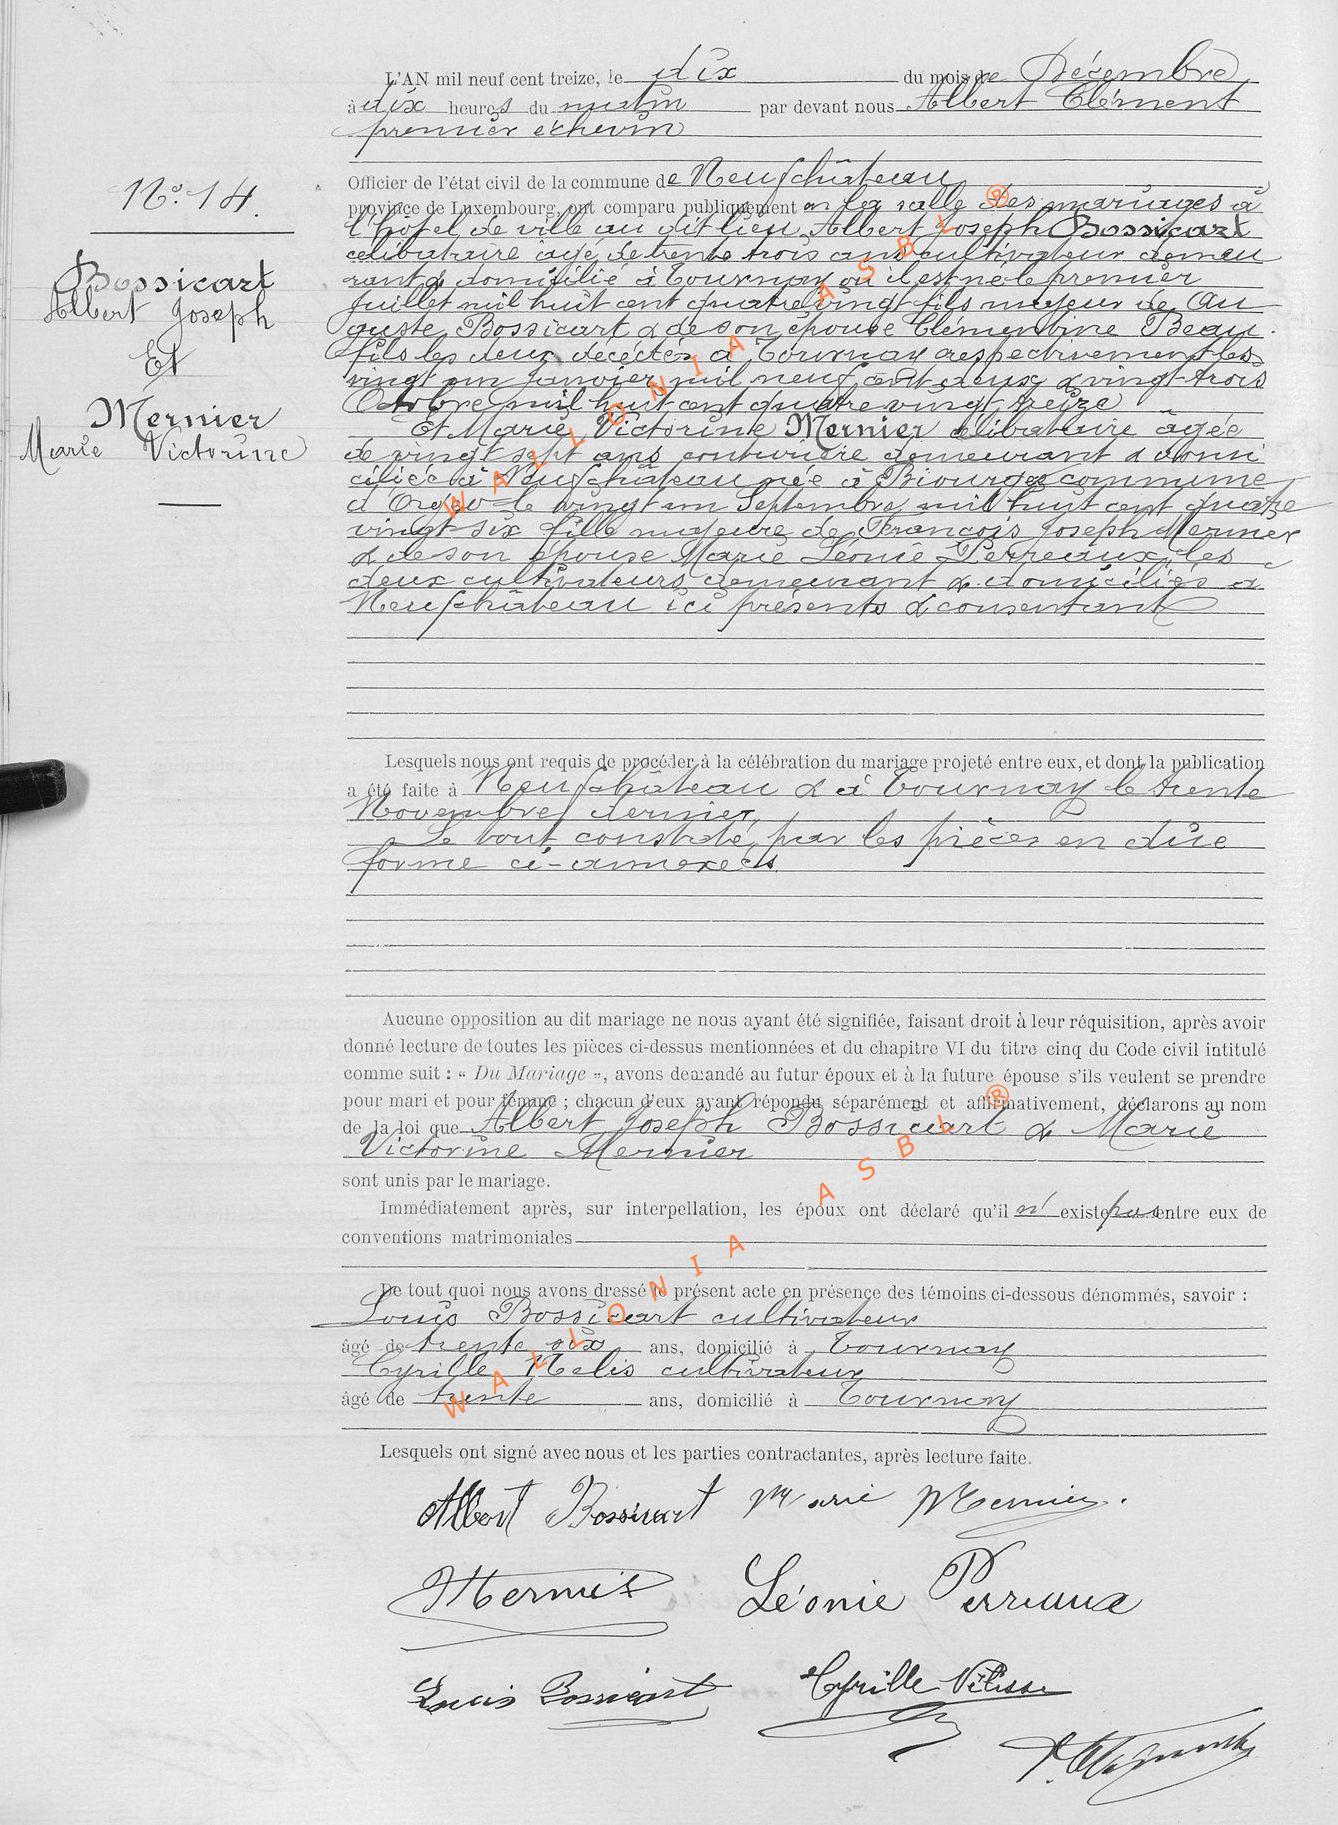 L'AN mil neuf cent treize, le dix du mois de Décembre
à dix heures du matin par devant nous Albert Clément
premier échevin
Officier de l'état civil de la commune de Neufchâteau
province de Luxembourg, ont comparu publiquement en la salle des mariages à
l'hôtel de ville au dit lieu, Albert Joseph Bossicart
célibataire âgé de trente trois ans cultivateur demeu
rant & domicilié à Tournay où il est né le premier
Juillet mil huit cent quatre vingt fils majeur de Au
guste Bossicart & de son épouse Clémentine Beau
fils les deux décédés à Tournay respectivement les
vingt un Janvier mil neuf cent deux & vingt-trois
Octobre mil huit cent quatre vingt treize
Et Marie Victorine Mernier célibataire âgée
de vingt sept ans couturière demeurant & domi
ciliée à Neufchâteau née à Biourge commune
d'Orgeo le vingt un Septembre mil huit cent quatre
vingt-six fille majeure de François Joseph Mernier
& de son épouse Marie Léonie Perreaux, les
deux cultivateurs demeurant & domiciliés à
Neufchâteau ici présents & consentant
N° 14.
Bossicart
Albert Joseph
Et
Mernier
Marie Victorine
Lesquels nous ont requis de procéder à la célébration du mariage projeté entre eux, et dont la publication
a été faite à Neufchâteau & à Tournay le trente
Novembre dernier,
Le tout constaté par les pièces en dûe
forme ci-annexées
Aucune opposition au dit mariage ne nous ayant été signifiée, faisant droit à leur réquisition, après avoir
donné lecture de toutes les pièces ci-dessus mentionnées et du chapitre VI du titre cinq du Code civil intitulé
comme suit : « Du Mariage », avons demandé au futur époux et à la future épouse s'ils veulent se prendre
pour mari et pour femme ; chacun d'eux ayant répondu séparément et affirmativement, déclarons au nom
de la loi que Albert Joseph Bossicart & Marie
Victorine Mernier
sont unis par le mariage.
Immédiatement après, sur interpellation, les époux ont déclaré qu'il n' existe pas entre eux de
conventions matrimoniales
De tout quoi nous avons dressé le présent acte en présence des témoins ci-dessous dénommés, savoir :
Louis Bossicart cultivateur
âgé de trente six ans, domicilié à Tournay
Cyrille Nelis cultivateur
âgé de trente ans, domicilié à Tournay
Lesquels ont signé avec nous et les parties contractantes, après lecture faite.
Albert Bossicart Marie Mernier.
Mernier Léonie Perreaux
Louis Bossicart Cyrille
WALLONIA ASBL ®
WALLONIA ASBL ®